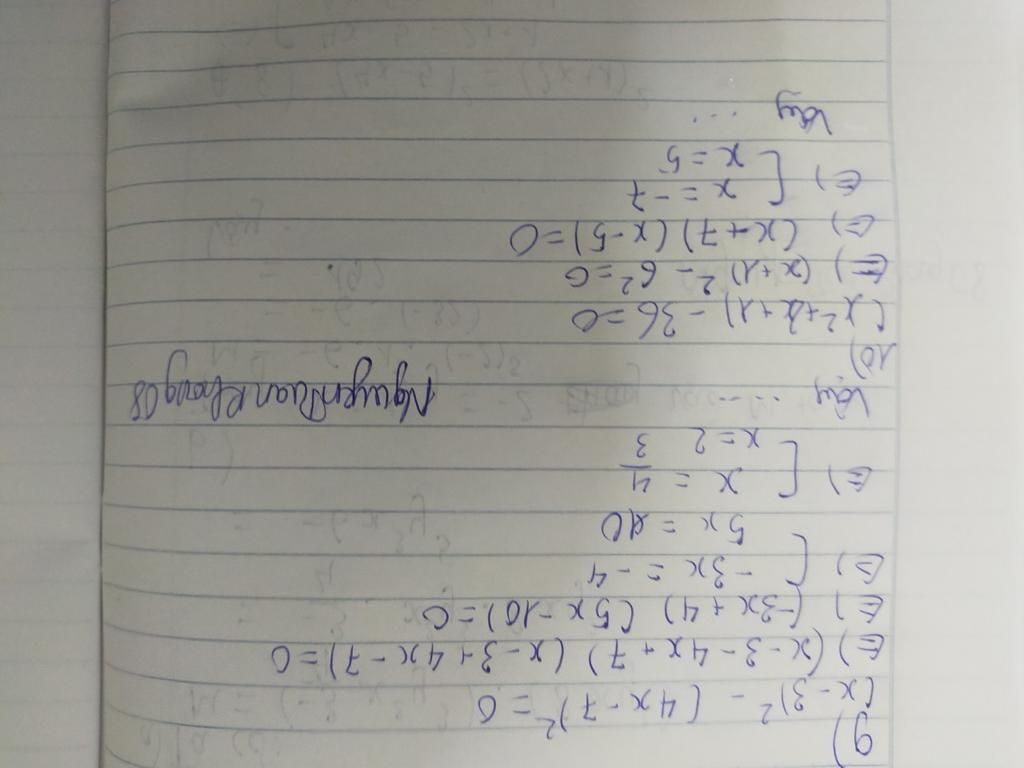 9)
(x-3)² - (4x-7)² = 0
⇔) (x-3-4x+7) (x-3+4x-7) = 0
⇔) (-3x+4) (5x-10) = 0
⇔) [ -3x = -4
5x = 10
⇔) [ x = 4/3
x = 2
Vậy ...... NguyenTuanKhang08
10)
(x²+2x+1) - 36 = 0
⇔) (x+1)² - 6² = 0
⇔) (x+7) (x-5) = 0
⇔) [ x = -7
x = 5
Vậy ...